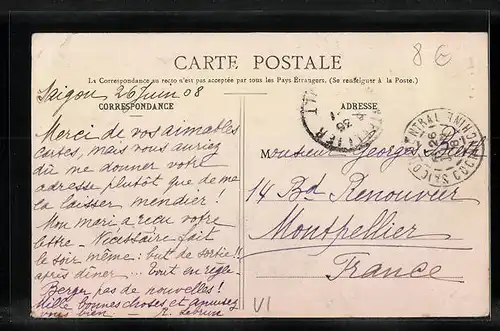 8 G
CARTE POSTALE
La Correspondance au recto n'est pas acceptée par tous les Pays Etrangers. (Se renseigner à la Poste.)
Saigon 26 Juin 08
CORRESPONDANCE
Merci de vos aimables
cartes, mais vous auriez
dû me donner votre
adresse plutôt que de me
la laisser mendier!
Mon mari a reçu votre
lettre - Nécessaire fait
le soir même: but de sortie!!
après dîner... Tout en règle
pas de nouvelles!
Mille bonnes choses et amusez
vous bien - R. Lebrun
ADRESSE
Monsieur Georges
14 Bd Renouvier
Montpellier
France
VI
SAIGON CENTRAL
COCHINCHINE
26
08